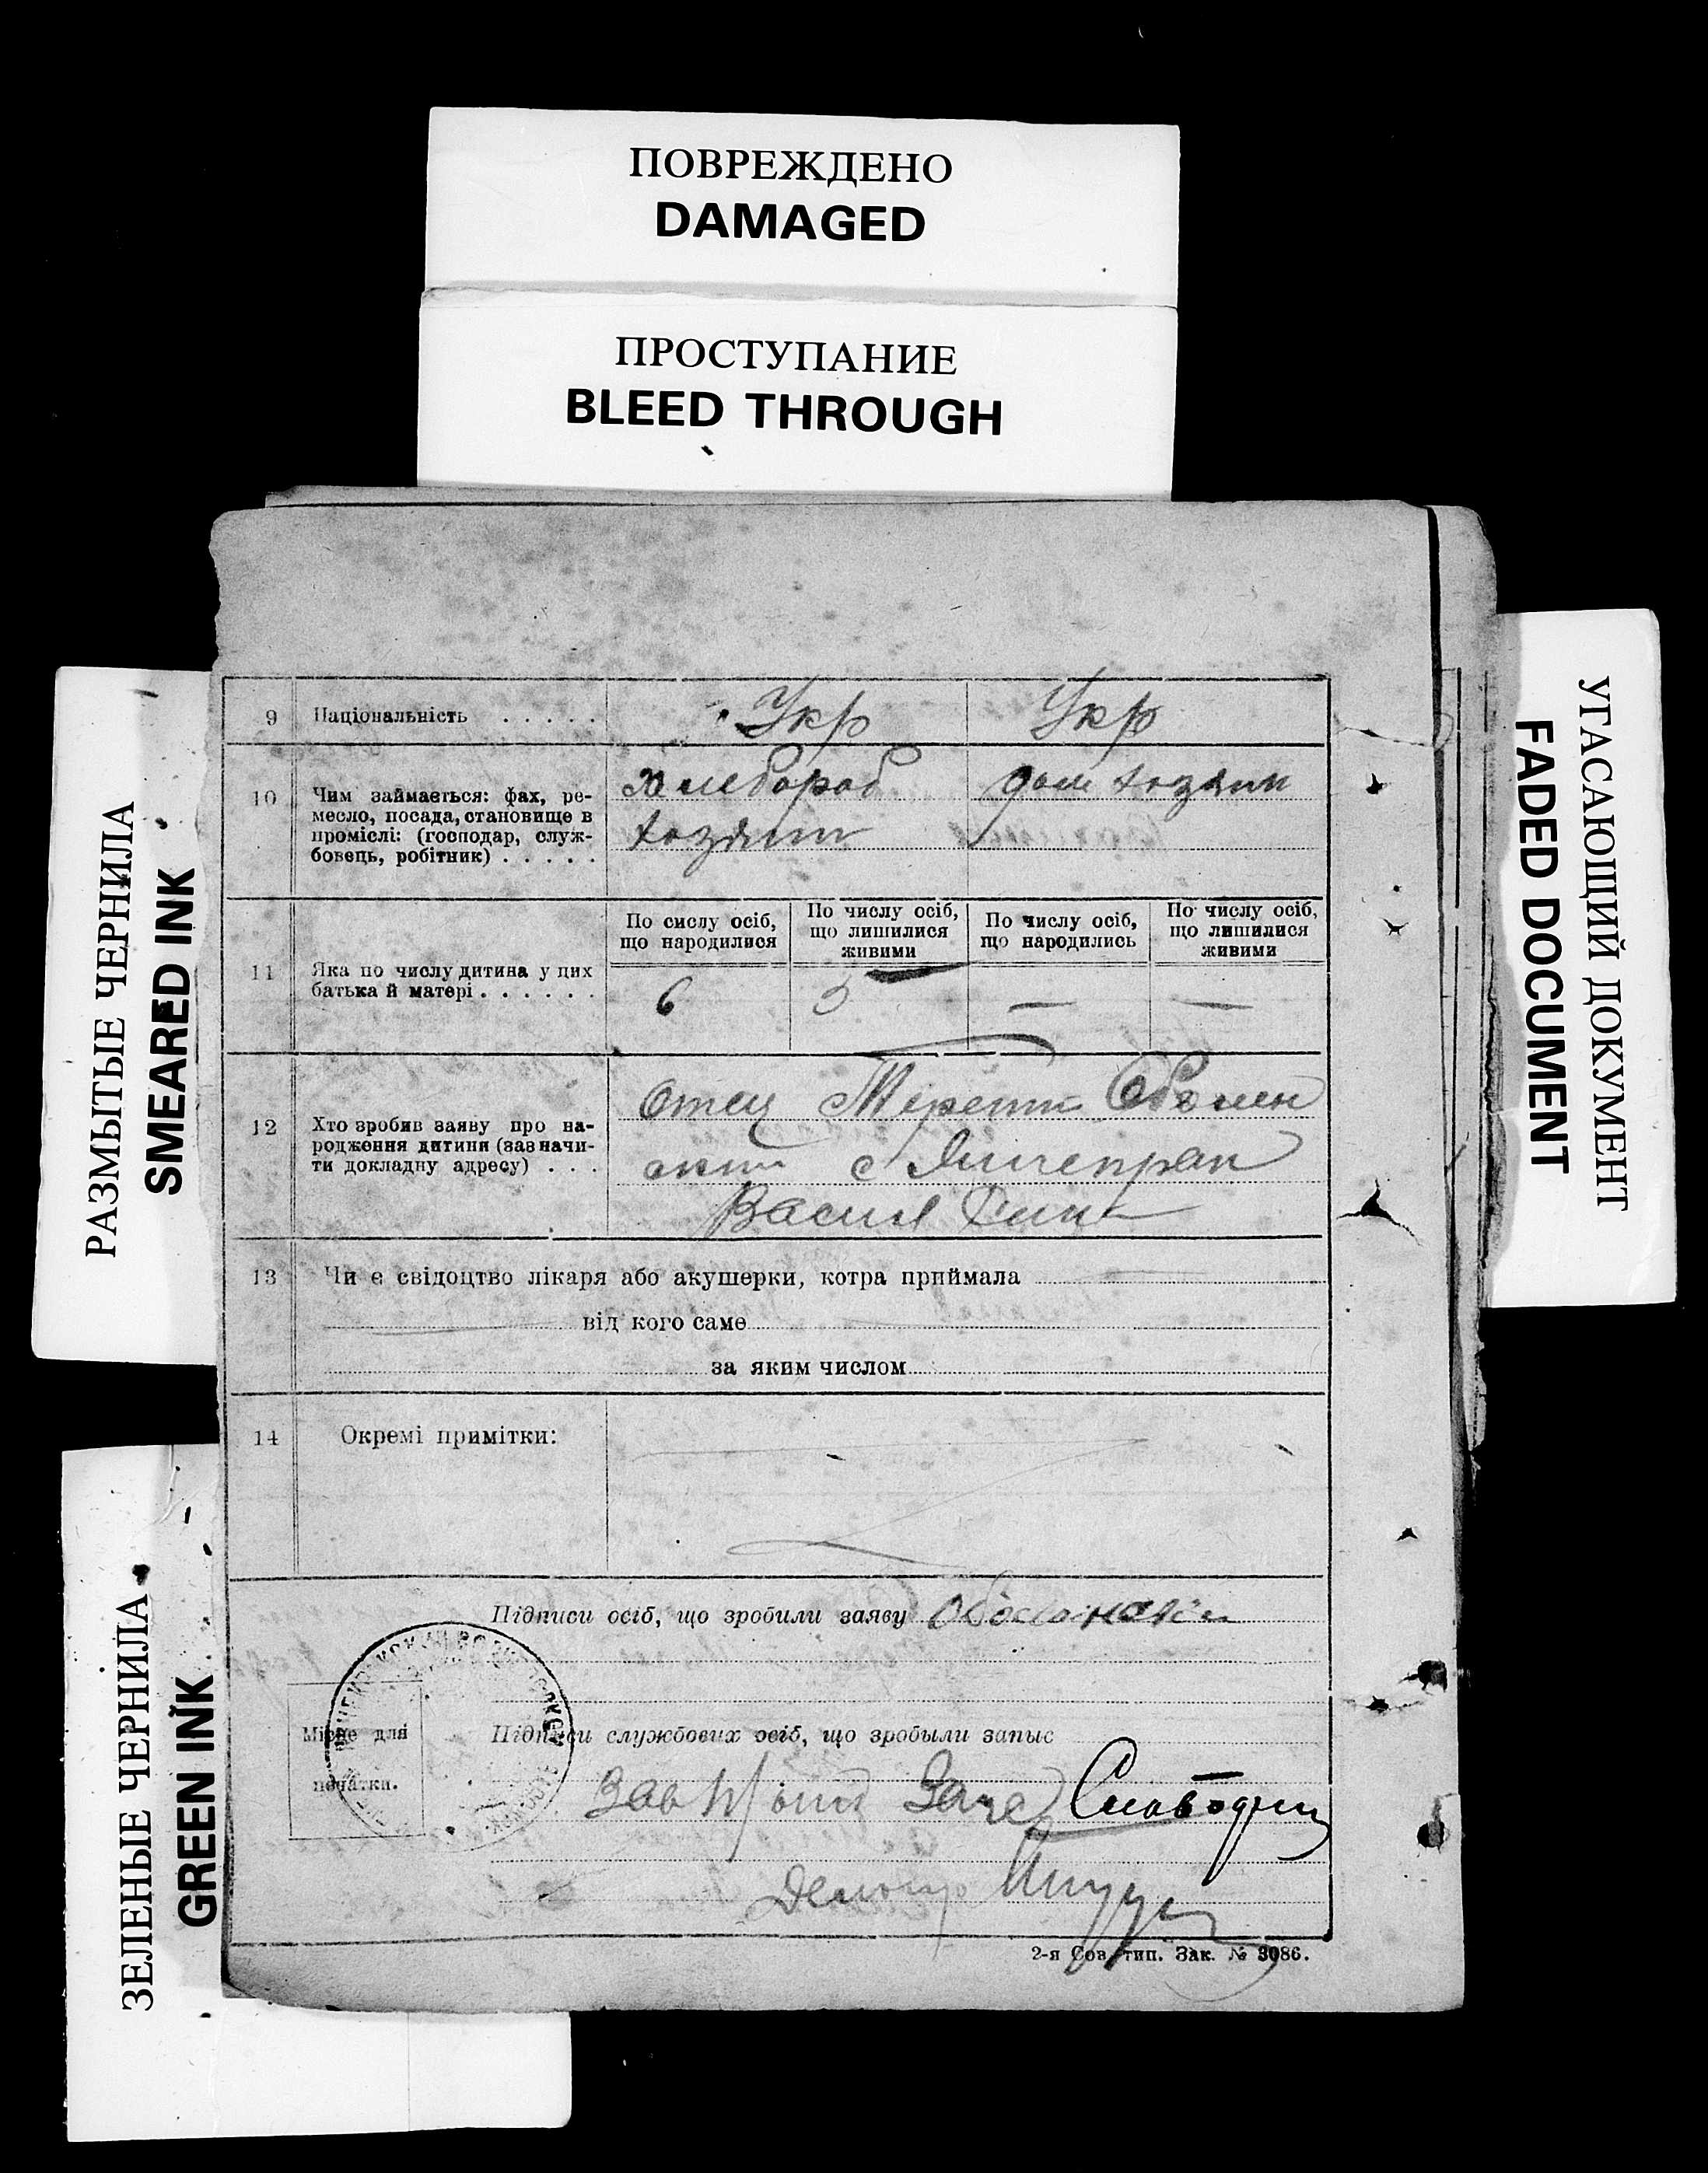 ПОВРЕЖДЕНО
DAMAGED
ПРОСТУПАНИЕ
BLEED THROUGH
РАЗМЫТЫЕ ЧЕРНИЛА
SMEARED INK
ЗЕЛЕНЫЕ ЧЕРНИЛА
GREEN INK
УГАСАЮЩИЙ ДОКУМЕНТ
FADED DOCUMENT
9 Національність . . . . . Укр Укр
10 Чим займається: фах, ре-
месло, посада, становище в
проміслі: (господар, служ-
бовець, робітник) . . . . .
хлебороб
хозяин
дом хозяин
11 Яка по числу дитина у цих
батька й матері . . . . . .
По сислу осіб,
що народилися
По числу осіб,
що лишилися
живими
По числу осіб,
що народились
По числу осіб,
що лишилися
живими
6 5 — —
12 Хто зробив заяву про на-
родження дитини (зазначи-
ти докладну адресу) . . .
отец
с
Васил
13 Чи є свідоцтво лікаря або акушерки, котра приймала
від кого саме
за яким числом
14 Окремі примітки:
Підписи осіб, що зробили заяву
Місце для
печатки.
Підписи службових осіб, що зробыли запыс
Зав
2-я Сов. тип. Зак. № 3086.